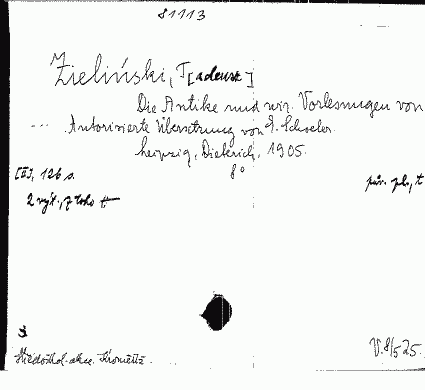 81113
Zieliński, T[adeusz]
Die Antike und wir. Vorlesungen von
--- Autorisierte Übersetzung von E. Schoeler.
Leipzig, Dieterich, 1905.
8°
[II], 126 s.
pův. pl., t
2 výt., z toho
V. 8/5 25.